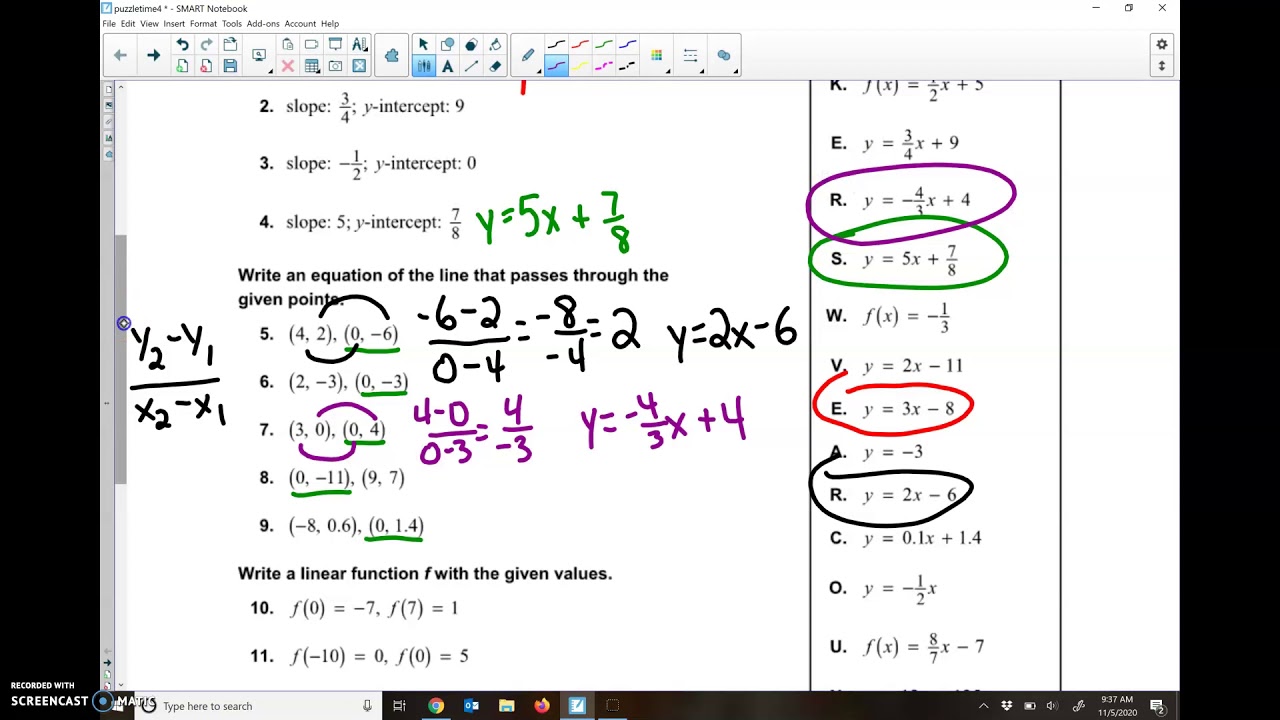 puzzletime4 * - SMART Notebook
File Edit View Insert Format Tools Add-ons Account Help
2. slope: 3/4; y-intercept: 9
3. slope: −1/2; y-intercept: 0
4. slope: 5; y-intercept: 7/8 y=5x+7/8
Write an equation of the line that passes through the
given points.
5. (4, 2), (0, −6) -6-2/0-4=-8/-4=2 y=2x-6
y2-y1/x2-x1
6. (2, −3), (0, −3)
7. (3, 0), (0, 4) 4-0/0-3=4/-3 y=-4/3x+4
8. (0, −11), (9, 7)
9. (−8, 0.6), (0, 1.4)
Write a linear function f with the given values.
10. f(0) = −7, f(7) = 1
11. f(−10) = 0, f(0) = 5
K. f(x) = 1/2x + 5
E. y = 3/4x + 9
R. y = −4/3x + 4
S. y = 5x + 7/8
W. f(x) = −1/3
V. y = 2x − 11
E. y = 3x − 8
A. y = −3
R. y = 2x − 6
C. y = 0.1x + 1.4
O. y = −1/2x
U. f(x) = 8/7x − 7
RECORDED WITH
SCREENCAST MATIC
Type here to search
9:37 AM
11/5/2020
2